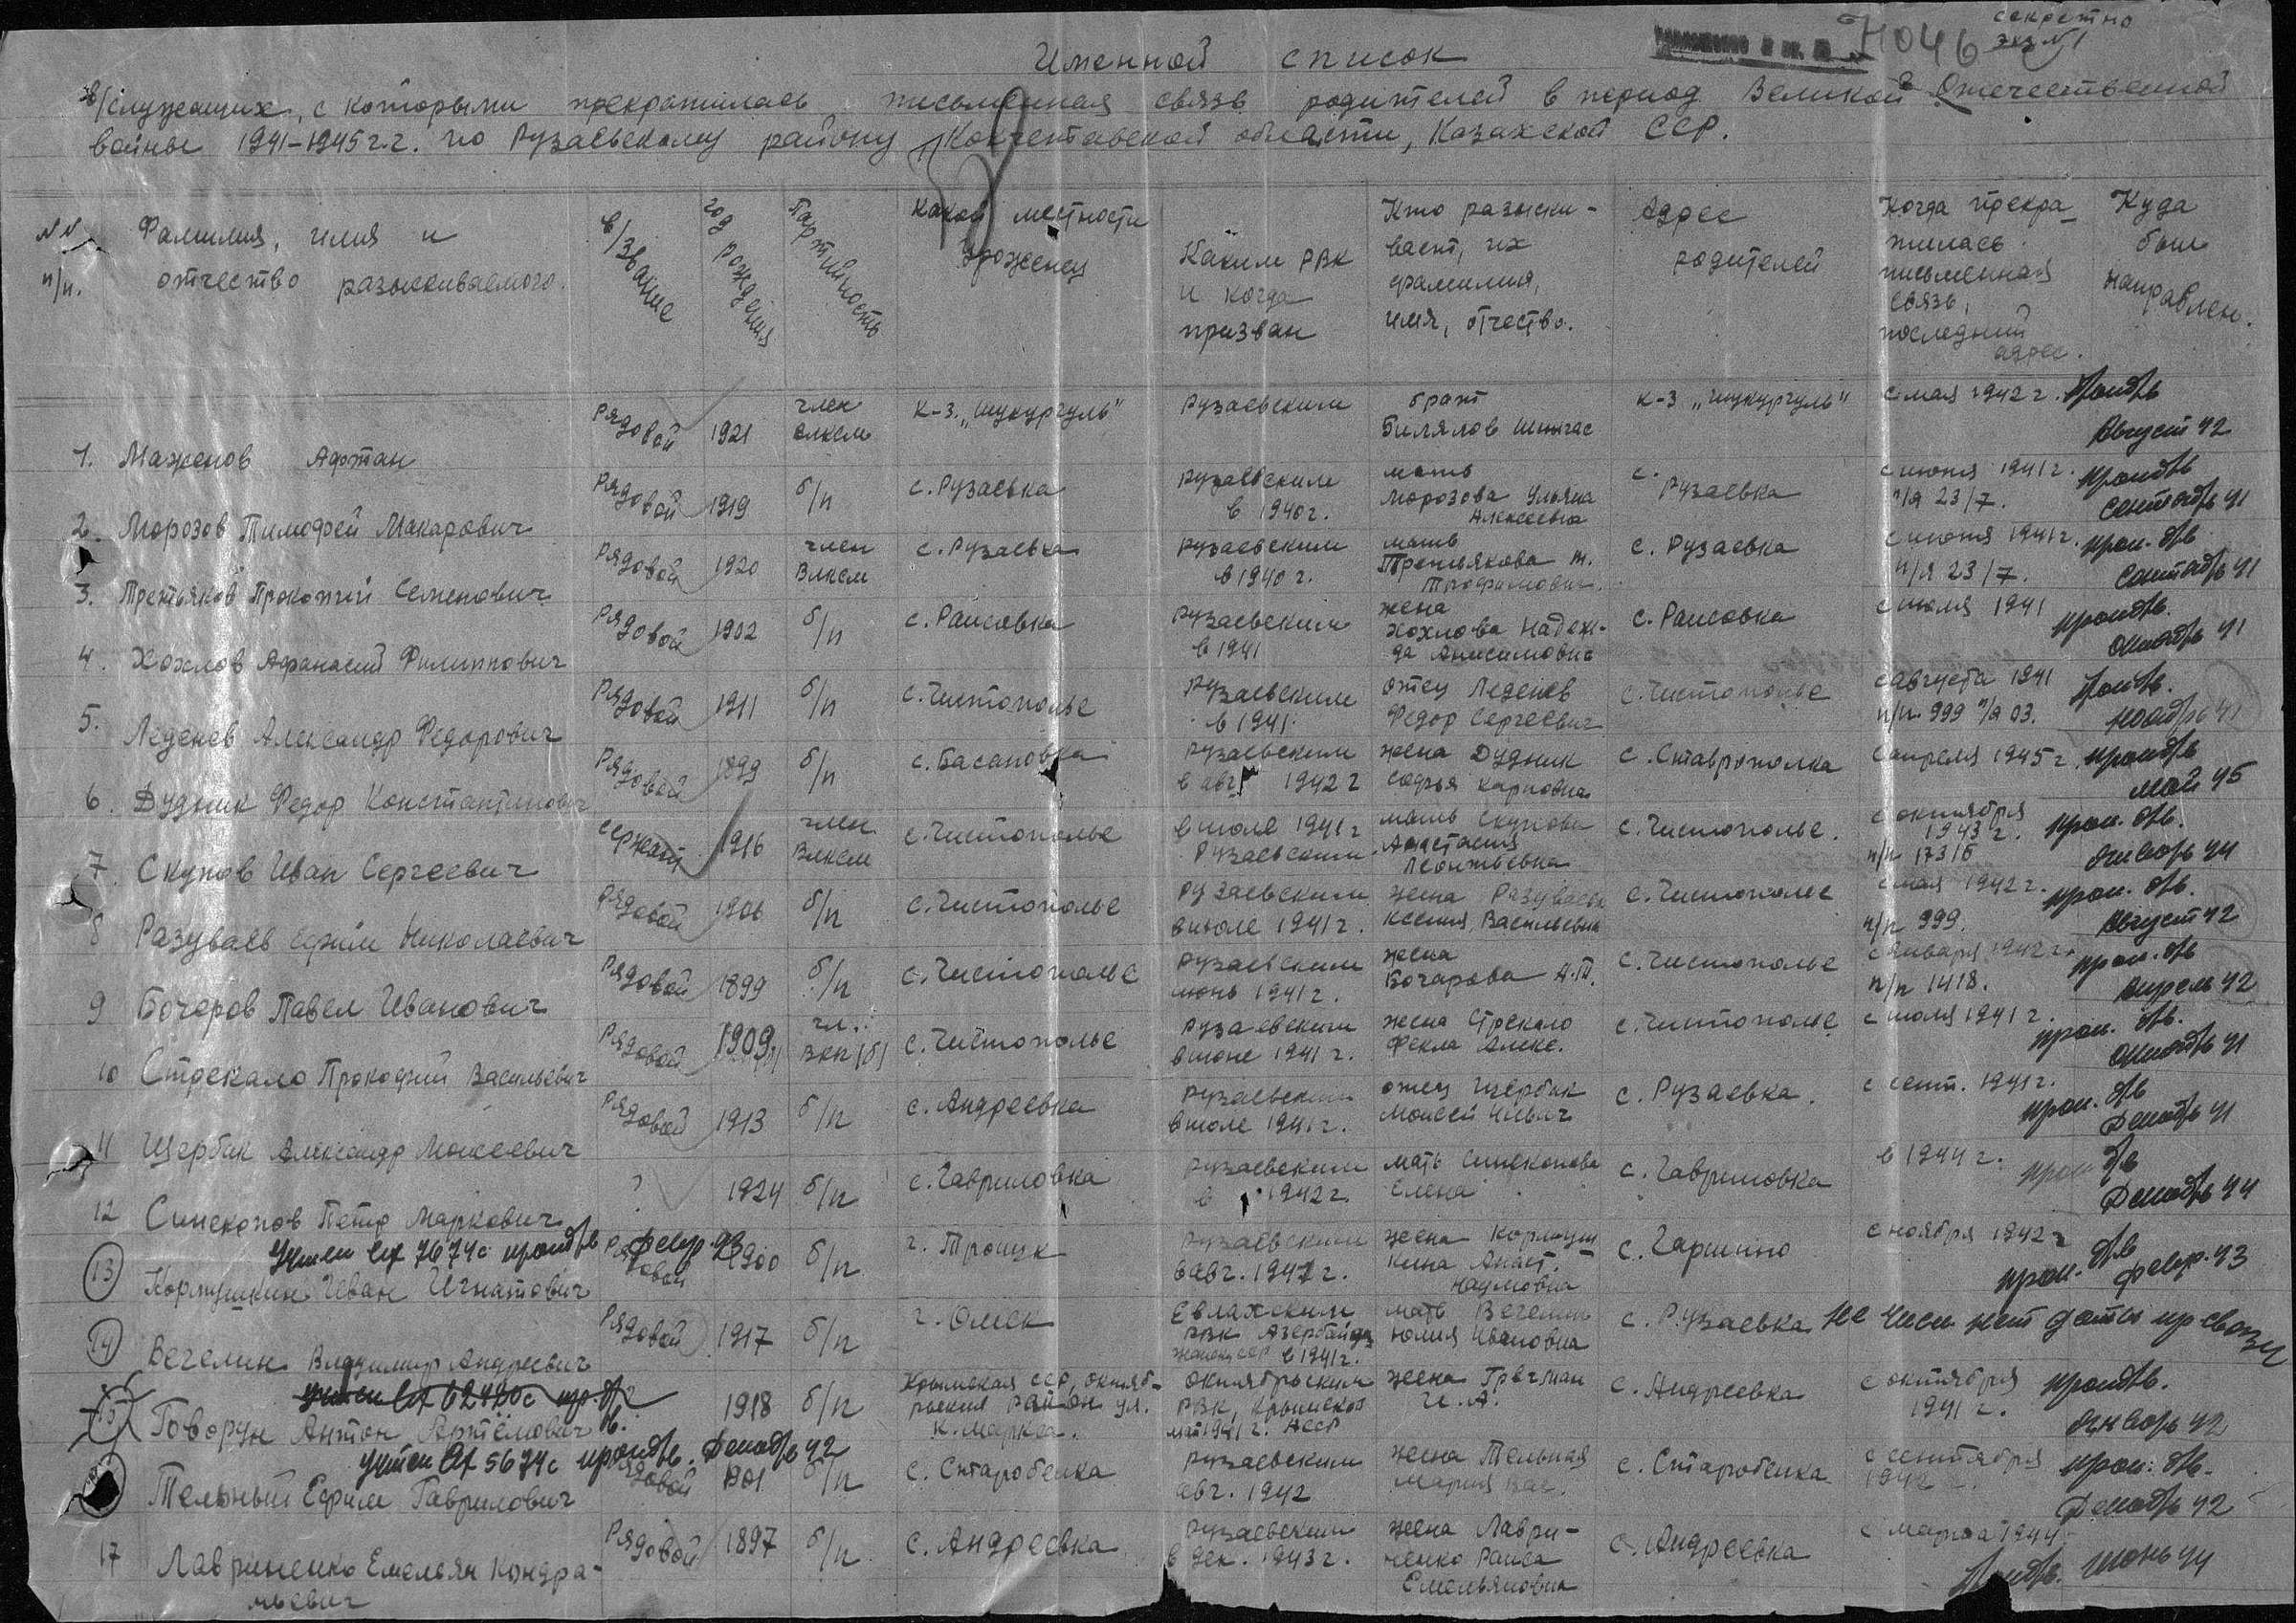 секретно
экз. №1
Н046
Именной список
в/служащих, с которыми прекратилась письменная связь родителей в период Великой Отечественной
войны 1941-1945 г.г. по Рузаевскому району Кокчетавской области, Казахской ССР.
№№ п/п. Фамилия, имя и отчество разыскиваемого. в/звание год рождения Партийность Какой местности уроженец Каким РВК и когда призван Кто разыскивает, их фамилия, имя, отчество. Адрес родителей Когда прекратилась письменная связь, последний адрес. Куда был направлен.
1. Маженов Афтан рядовой 1921 член влксм к-з. „Шукургуль" Рузаевским брат Билялов к-з „Шукургуль" с мая 1942 г. проп б/в Август 42
2. Морозов Тимофей Макарович рядовой 1919 б/п с. Рузаевка Рузаевским в 1940 г. мать Морозова Ульяна Алексеевна с. Рузаевка с июня 1941 г. п/я 23/7. проп б/в Сентябрь 41
3. Третьяков Прокопий Семенович рядовой 1920 член Влксм с. Рузаевка Рузаевским в 1940 г. мать Третьякова т. Трофимович. с. Рузаевка с июня 1941 г. п/я 23/7. проп. б/в Сентябрь 41
4. Хохлов Афанасий Филиппович рядовой 1902 б/п с. Раисовка Рузаевским в 1941 жена Хохлова Надежда Анисимовна с. Раисовка с июля 1941 проп б/в. Октябрь 41
5. Леденев Александр Федорович рядовой 1911 б/п с. Чистополье Рузаевским в 1941. отец Леденев Федор Сергеевич с. Чистополье с августа 1941 п/п. 999 п/я 03. проп б/в. Ноябрь 41
6. Дудник Федор Константинович рядовой 1899 б/п с. Басановка Рузаевским в авг 1942 г жена Дудник Софья Карповна с. Ставрополка с апреля 1945 г. проп б/в май 45
7. Скупов Иван Сергеевич сержант 1916 член Влксм с. Чистополье в июле 1941 г Рузаевским мать Скупова Анастасия Леонтьевна с. Чистополье. с октября 1943 г. п/п 17316 проп. б/в. Январь 44
8 Разуваев Ефим Николаевич рядовой 1906 б/п с. Чистополье Рузаевским в июле 1941 г. жена Разуваева Ксения Васильевна с. Чистополье с мая 1942 г. п/п 999. проп. б/в. Август 42
9 Бочаров Павел Иванович рядовой 1899 б/п с. Чистополье Рузаевским июнь 1941 г. жена Бочарова А.П. с. Чистополье с января 1942 г. п/п 1418. проп. б/в Апрель 42
10 Стрекало Прокофий Васильевич рядовой 1909 чл. ВКП(б) с. Чистополье Рузаевским в июне 1941 г. жена Стрекало Фекла Алекс. с. Чистополье с июля 1941 г. проп. б/в. Октябрь 41
11 Щербак Александр Моисеевич рядовой 1913 б/п с. Андреевка Рузаевским в июле 1941 г. отец Щербак Моисей Ильич с. Рузаевка. с сент. 1941 г. проп. б/в Декабрь 41
12 Синекопов Петр Маркович ? 1924 б/п с. Гавриловка Рузаевским в 1942 г. мать Синекопова Елена с. Гавриловка в 1944 г. проп б/в Декабрь 44
учтен вх 7674с проп б/в февр. 43
13 Кормушкин Иван Игнатович рядовой 1900 б/п г. Троицк Рузаевским в авг. 1941 г. жена Кормушкина Анаст. Наумовна с. Гаршино с ноября 1942 г проп. б/в февр. 43
14 Вегелин Владимир Андреевич рядовой 1917 б/п г. Омск Евлахским РВК Азербайджанской ССР в 1941 г. мать Вегелин Юлия Ивановна с. Рузаевка Не числ нет даты пр связи
учтен вх 62480с пр. б/в.
15 Говорун Антон Артёмович 1918 б/п Крымская ССР, Октябрьский район ул. К. Маркса. Октябрьским РВК, Крымской АССР май 1941 г. жена Гречман И.А. с. Андреевка с октября 1941 г. проп б/в. Январь 42
учтен вх 5674с проп б/в. Декабрь 42
Тельный Ефим Гаврилович рядовой 1901 б/п с. Старобелка Рузаевским авг. 1942 жена Тельная Мария Вас. с. Старобелка с сентября 1942 г. проп. б/в. Декабрь 42
17 Лавриненко Емельян Кондратьевич рядовой 1897 б/п с. Андреевка Рузаевским в дек. 1943 г. жена Лавриненко Раиса Емельяновна с. Андреевка с марта 1944 проп б/в. Июнь 44